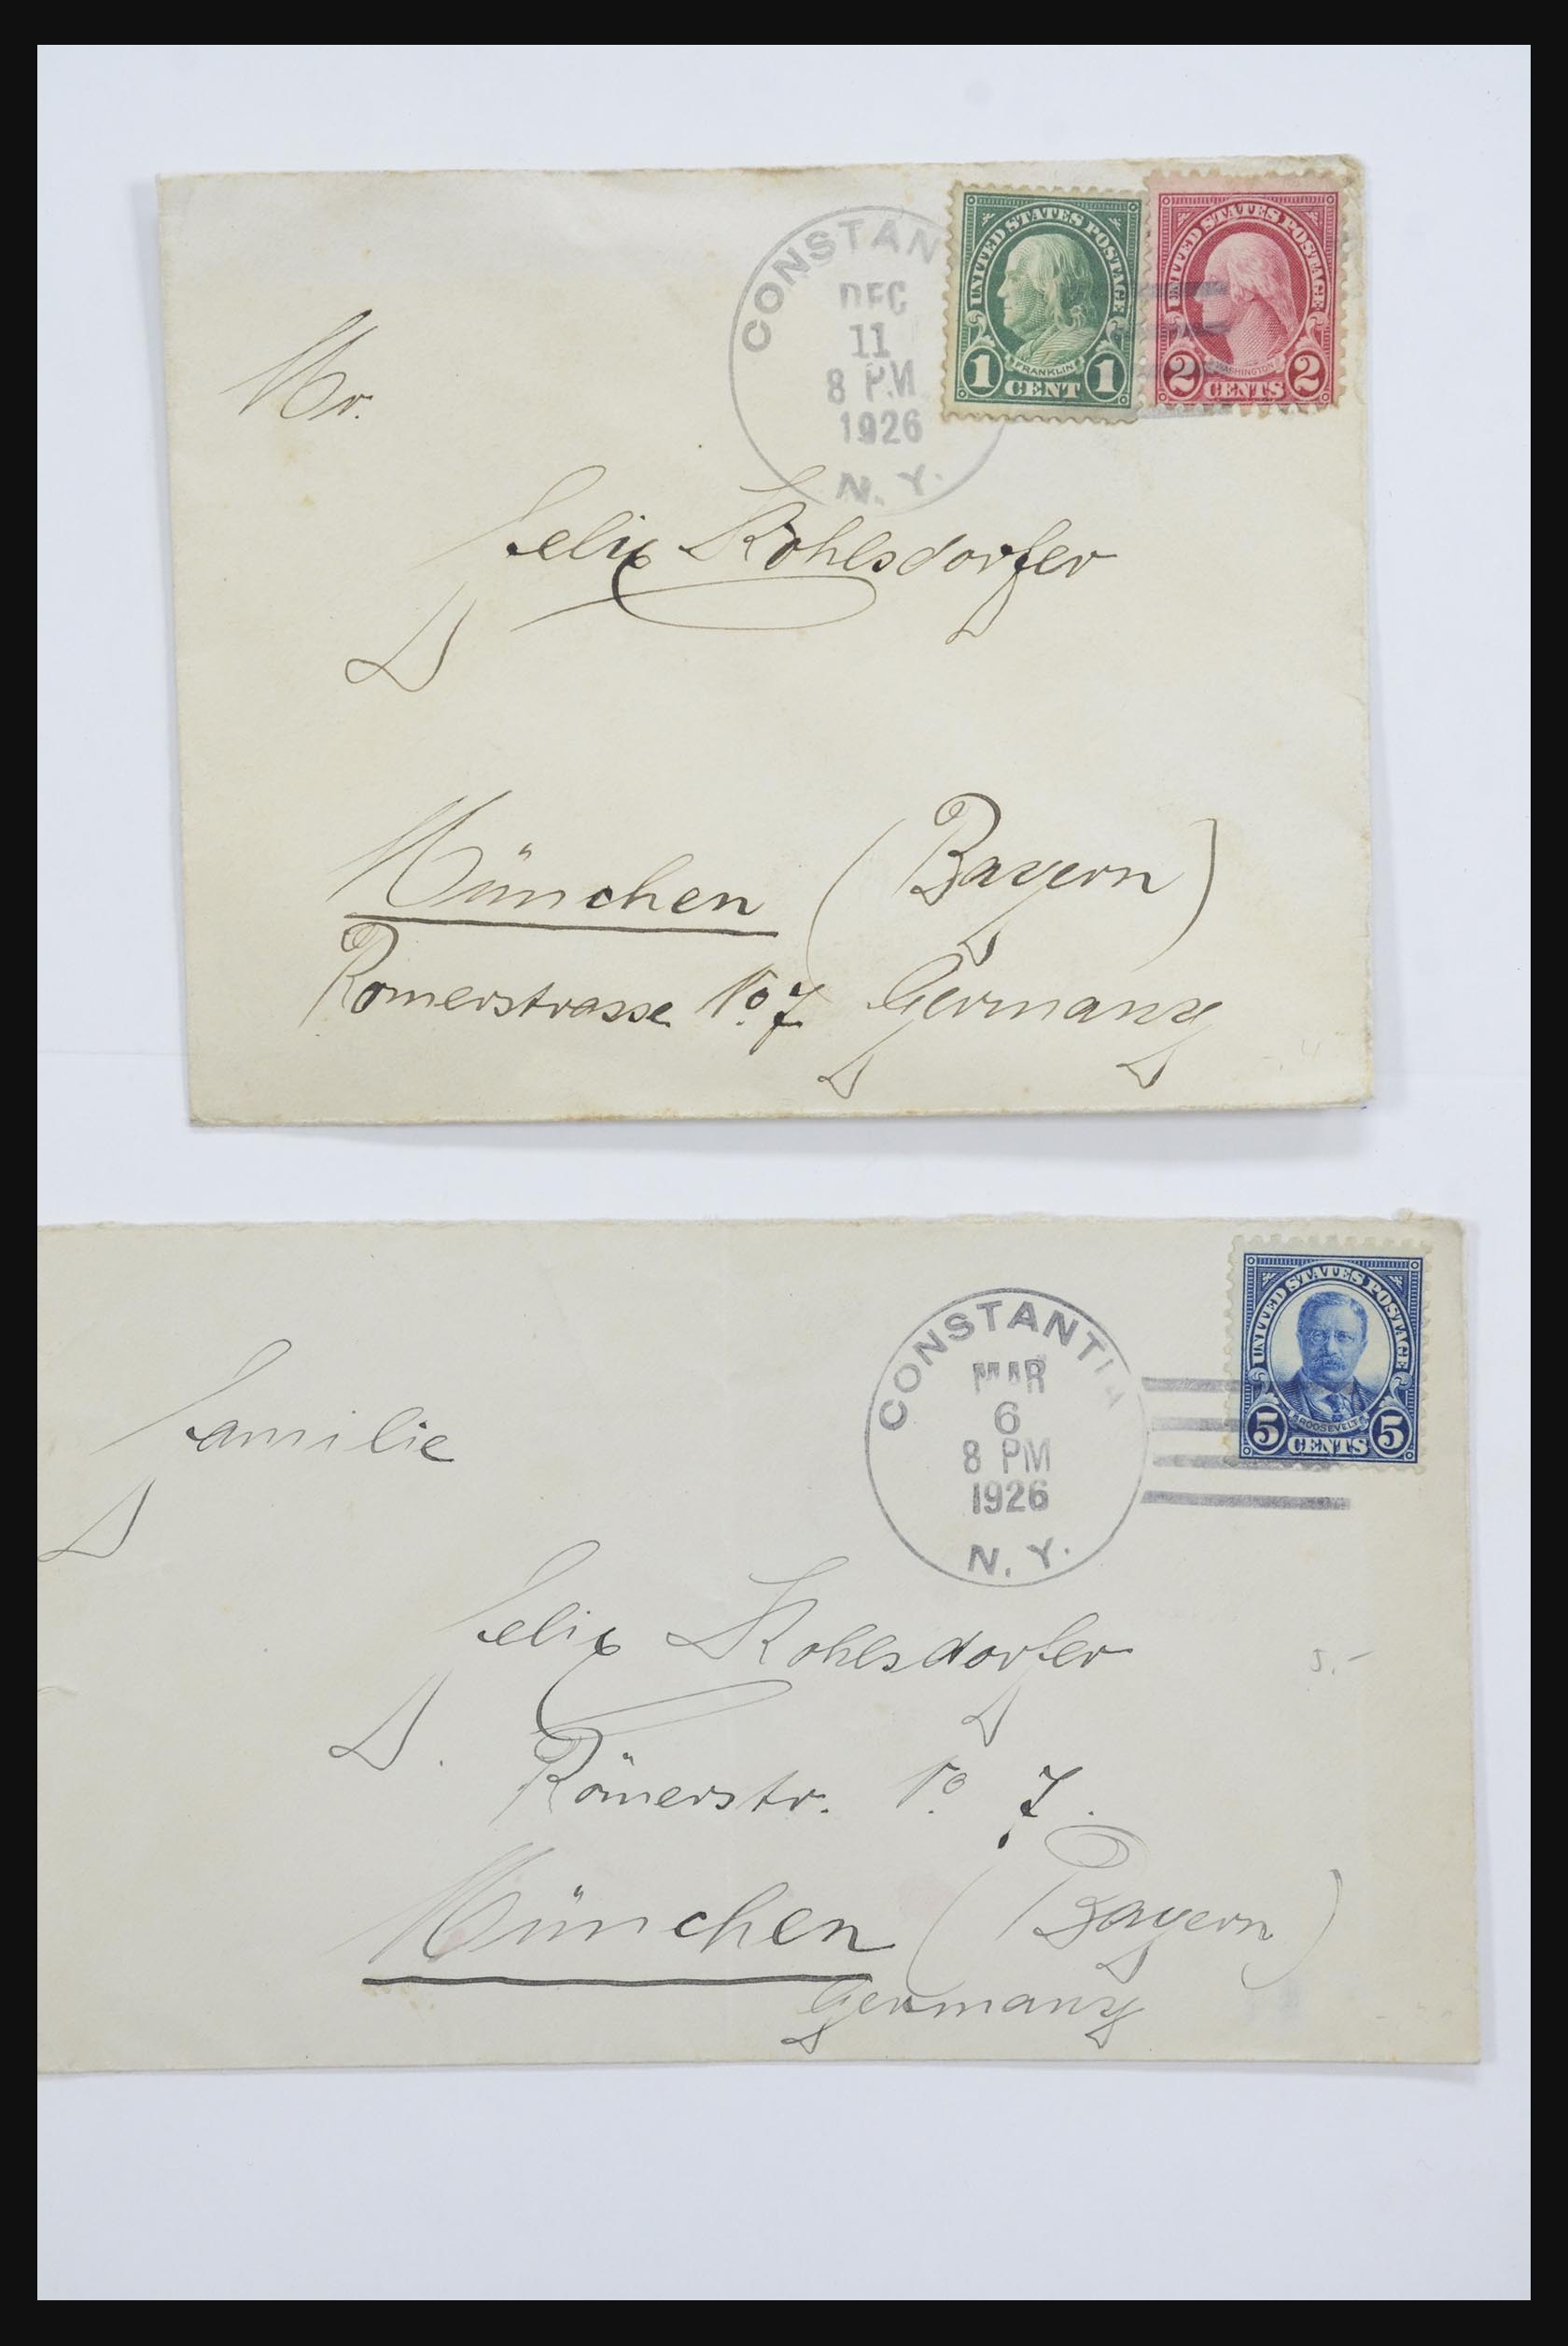 CONSTAN
DEC
11
8 PM
1926
N. Y.
UNITED STATES POSTAGE
FRANKLIN
1 CENT 1
UNITED STATES POSTAGE
WASHINGTON
2 CENTS 2
Mr.
Felix Kohlsdorfer
München (Bayern)
Romerstrasse No. 7 Germany
CONSTANTIA
MAR
6
8 PM
1926
N. Y.
UNITED STATES POSTAGE
ROOSEVELT
5 CENTS 5
Familie
Felix Kohlsdorfer
5.-
Römerstr. No. 7.
München (Bayern)
Germany